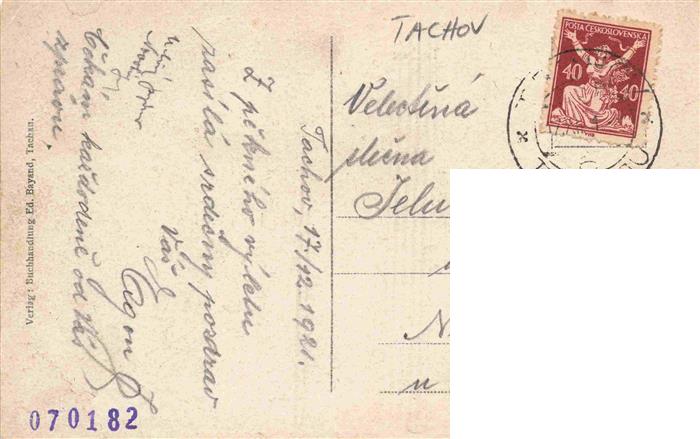 TACHOV
POŠTA ČESKOSLOVENSKÁ
40 40
Velectěná
slečna
N
u
Tachov, 17/12. 1921.
Z pěkného výletu
zasílá srdečný pozdrav
Váš
Egon
Čekám každodeně od Vás
zprávu.
Verlag: Buchhandlung Ed. Bayand, Tachau.
070182